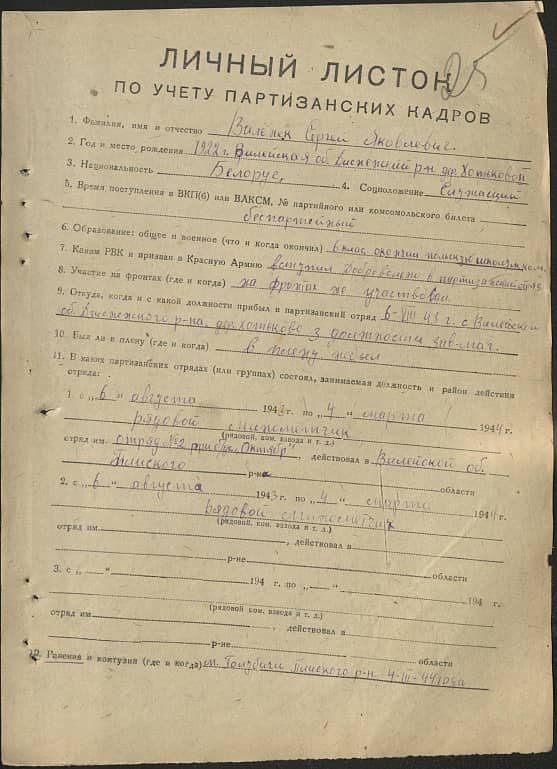 25
ЛИЧНЫЙ ЛИСТОК
ПО УЧЕТУ ПАРТИЗАНСКИХ КАДРОВ
1. Фамилия, имя и отчество Виленек Сергей Яковлевич.
2. Год и место рождения 1922 г. Вилейская об. р-н дер. Хотьково
3. Национальность Белорус, 4. Соцположение Служащий
5. Время поступления в ВКП(б) или ВЛКСМ, № партийного или комсомольского билета
беспартейный
6. Образование: общее и военное (что и когда окончил) окончил польскую
7. Каким РВК и призван в Красную Армию вступил добровольно в партизанский отряд
8. Участие на фронтах (где и когда) на фронтах не участвовал
9. Откуда, когда и с какой должности прибыл в партизанский отряд 6-VIII 43 г. с Вилейской
об. р-на, дер. Хотьково з должности зав-маг.
10. Был ли в плену (где и когда) в плену небыл
11. В каких партизанских отрядах (или группах) состоял, занимаемая должность и район действия
отряда:
1. с „6“ августа 1943 г. по „4“ марта 1944 г.
рядовой минометчик
(рядовой, ком. взвода и т. д.)
отряд им. отряд №2 Октябр", действовал в Вилейской об.
Плиского р-на области
2. с „6“ августа 1943 г. по „4“ марта 1944 г.
рядовой минометчик
(рядовой, ком. взвода и т. д.)
отряд им. , действовал в
р-не области
3. с „ “ 194 г. по „ “ 194 г.
(рядовой ком. взвода и т. д.)
отряд им , действовал в
р-не области
12. Ранения и контузии (где и когда) Голубичи Плиского р-н. 4-III-44 года